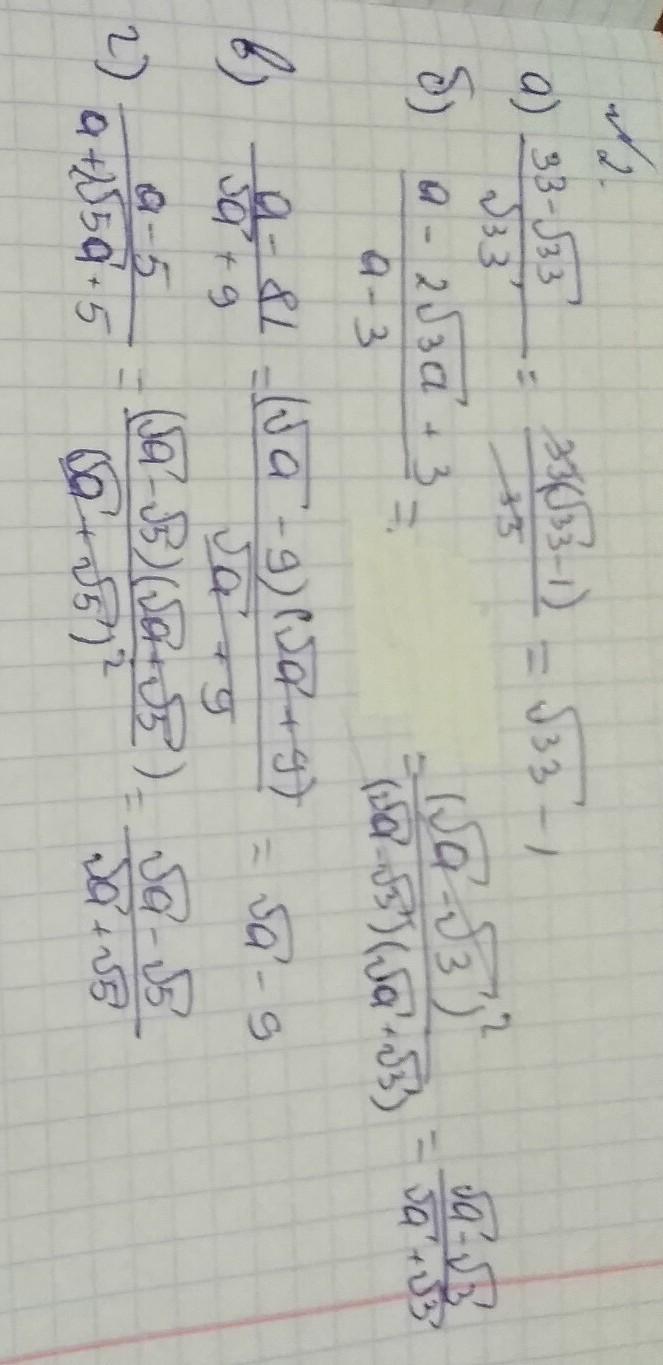 №2.
а) (33-√33)/√33 = 33(√33-1)/33 = √33-1
б) (a-2√3a+3)/(a-3) = = (√a-√3)²/((√a-√3)(√a+√3)) = (√a-√3)/(√a+√3)
в) (a-81)/(√a+9) = (√a-9)(√a+9)/(√a+9) = √a-9
г) (a-5)/(a+2√5a+5) = (√a-√5)(√a+√5)/(√a+√5)² = (√a-√5)/(√a+√5)